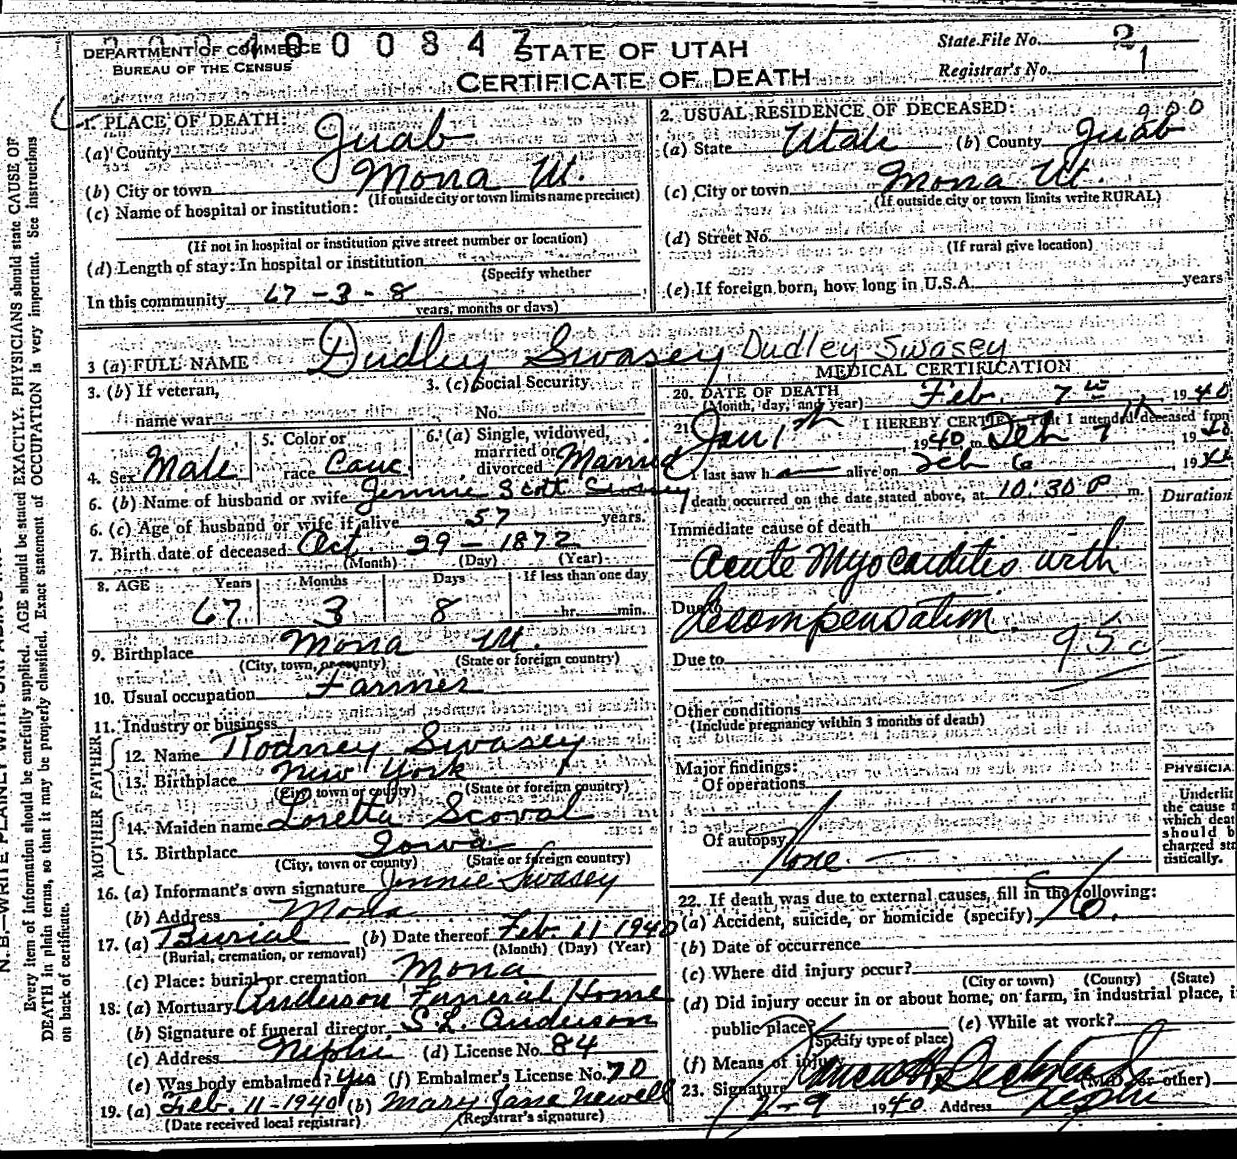 DEPARTMENT OF COMMERCE
BUREAU OF THE CENSUS
STATE OF UTAH
CERTIFICATE OF DEATH
State File No. 2
Registrar's No. 1
1. PLACE OF DEATH:
(a) County Juab
(b) City or town Mona Ut.
(If outside city or town limits name precinct)
(c) Name of hospital or institution:
(If not in hospital or institution give street number or location)
(d) Length of stay: In hospital or institution
(Specify whether
In this community 67-3-8
years, months or days)
2. USUAL RESIDENCE OF DECEASED:
(a) State Utah (b) County Juab
(c) City or town Mona Ut.
(If outside city or town limits write RURAL)
(d) Street No.
(If rural give location)
(e) If foreign born, how long in U.S.A. years
3 (a) FULL NAME Dudley Swasey Dudley Swasey
3. (b) If veteran,
name war
3. (c) Social Security
No.
4. Sex Male
5. Color or
race Cauc.
6. (a) Single, widowed,
married or
divorced Married
6. (b) Name of husband or wife Jennie Scott Swasey
6. (c) Age of husband or wife if alive 57 years.
7. Birth date of deceased Oct. 29-1872
(Month) (Day) (Year)
8. AGE Years Months Days If less than one day
67 3 8 hr. min.
9. Birthplace Mona Ut.
(City, town, or county) (State or foreign country)
10. Usual occupation Farmer
11. Industry or business
FATHER
12. Name Rodney Swasey
13. Birthplace New York
(City, town or county) (State or foreign country)
MOTHER
14. Maiden name Loretta Scoval
15. Birthplace Iowa
(City, town or county) (State or foreign country)
16. (a) Informant's own signature Jennie Swasey
(b) Address Mona
17. (a) Burial (b) Date thereof Feb. 11-1940
(Burial, cremation, or removal) (Month) (Day) (Year)
(c) Place: burial or cremation Mona
18. (a) Mortuary Anderson Funeral Home
(b) Signature of funeral director S.L. Anderson
(c) Address Nephi (d) License No. 84
(e) Was body embalmed? Yes (f) Embalmer's License No. 70
19. (a) Feb. 11-1940 (b) Mary Jane Newell
(Date received local registrar) (Registrar's signature)
MEDICAL CERTIFICATION
20. DATE OF DEATH Feb. 7th 1940
(Month, day, and year)
21. I HEREBY CERTIFY That I attended deceased from
Jan 1th 1940 to Feb 7 1940
I last saw h alive on Feb 6 1940
death occurred on the date stated above, at 10:30 P m.
Duration
Immediate cause of death
Acute Myocarditis with
Due to Decompensation.
Due to 95c
Other conditions
(Include pregnancy within 3 months of death)
Major findings:
Of operations
Of autopsy None.
PHYSICIA
Underli
the cause
which deat
should b
charged sta
tistically.
22. If death was due to external causes, fill in the following:
(a) Accident, suicide, or homicide (specify) No.
(b) Date of occurrence
(c) Where did injury occur?
(City or town) (County) (State)
(d) Did injury occur in or about home, on farm, in industrial place, i
public place? (e) While at work?
(Specify type of place)
(f) Means of injury
23. Signature (M.D. or other)
2-9 1940 Address Nephi
Every item of information should be carefully supplied. AGE should be stated EXACTLY. PHYSICIANS should state CAUSE OF
DEATH in plain terms, so that it may be properly classified. Exact statement of OCCUPATION is very important. See instructions
on back of certificate.